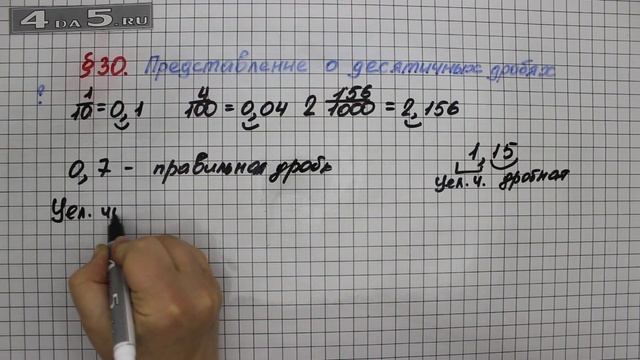 4DA5.RU
§30. Представление о десятичных дробях
? 1/10 = 0,1 4/100 = 0,04 2 156/1000 = 2,156
0,7 – правильная дробь
1,15
цел. ч. дробная
Цел. ч